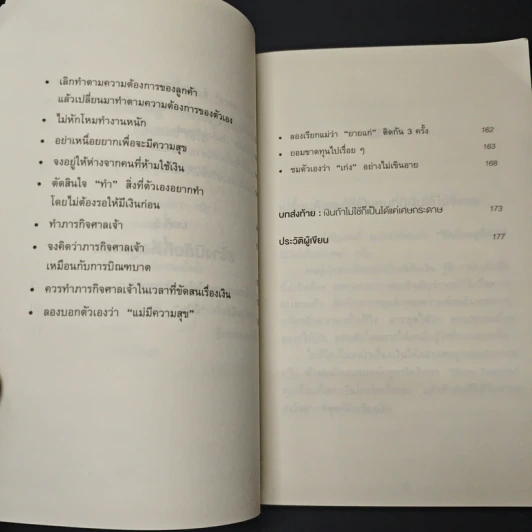 • เลิกทำตามความต้องการของลูกค้า
แล้วเปลี่ยนมาทำตามความต้องการของตัวเอง
• ไม่หักโหมทำงานหนัก
• อย่าเหนื่อยยากเพื่อจะมีความสุข
• จงอยู่ให้ห่างจากคนที่ห้ามใช้เงิน
• ตัดสินใจ “ทำ” สิ่งที่ตัวเองอยากทำ
โดยไม่ต้องรอให้มีเงินก่อน
• ทำภารกิจศาลเจ้า
• จงคิดว่าภารกิจศาลเจ้า
เหมือนกับการบิณฑบาต
• ควรทำภารกิจศาลเจ้าในเวลาที่ขัดสนเรื่องเงิน
• ลองบอกตัวเองว่า “แม่มีความสุข”
• ลองเรียกแม่ว่า “ยายแก่” ติดกัน 3 ครั้ง 162
• ยอมขาดทุนไปเรื่อย ๆ 163
• ชมตัวเองว่า “เก่ง” อย่างไม่เขินอาย 168
บทส่งท้าย : เงินถ้าไม่ใช้ก็เป็นได้แค่เศษกระดาษ 173
ประวัติผู้เขียน 177